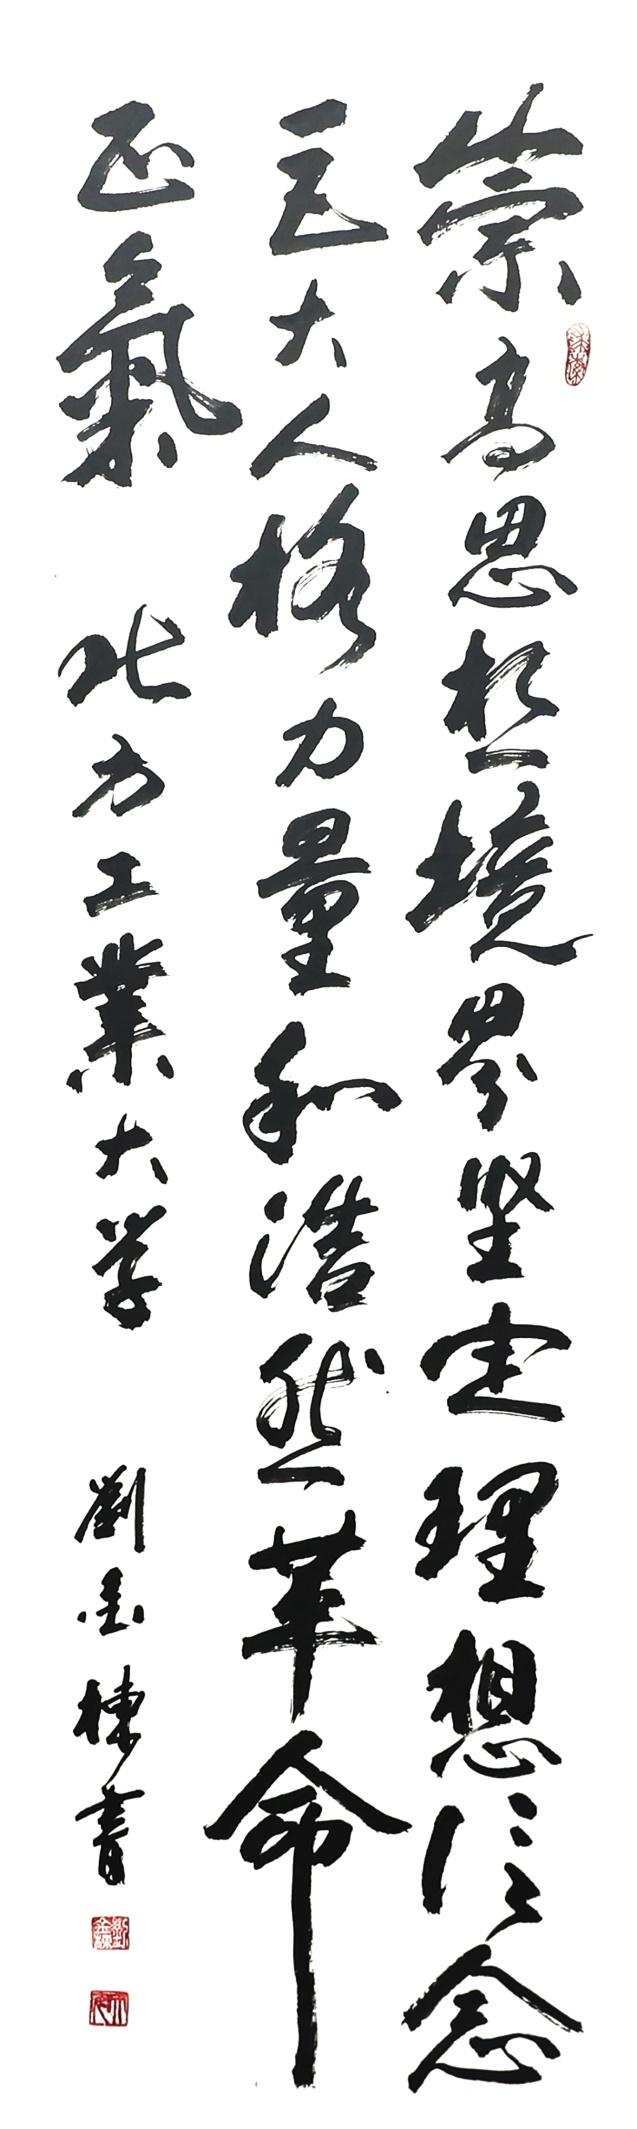 崇高思想境界坚定理想信念
巨大人格力量和浩然革命
正氣 北方工業大学 劉金棟書